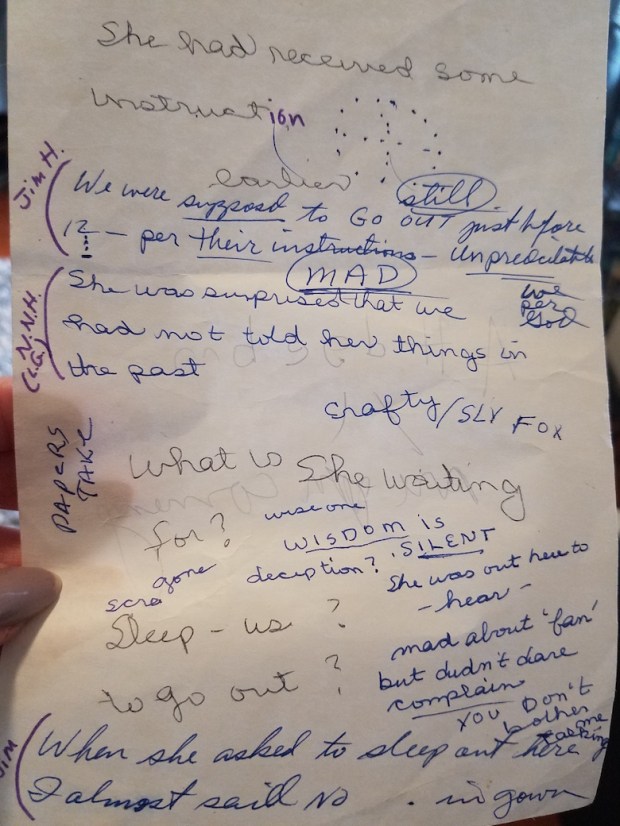 She had received some
instruction
earlier
still
Jim H.
We were supposed to GO OUT just before
12 — per their instructions — Unpredictable
MAD
we
per
God
N.N.H.
She was surprised that we
had not told her things in
the past
crafty/SLY FOX
PAPERS
TAKE
What is She waiting
for?
wise one
WISDOM is
SILENT
gone
deception?
She was out here to
- hear -
Sleep - us ?
mad about 'fan'
but didn't dare
complain
to go out ?
YOU DON'T
bother
me
talking
JIM
When she asked to sleep out here
I almost said NO . in gown